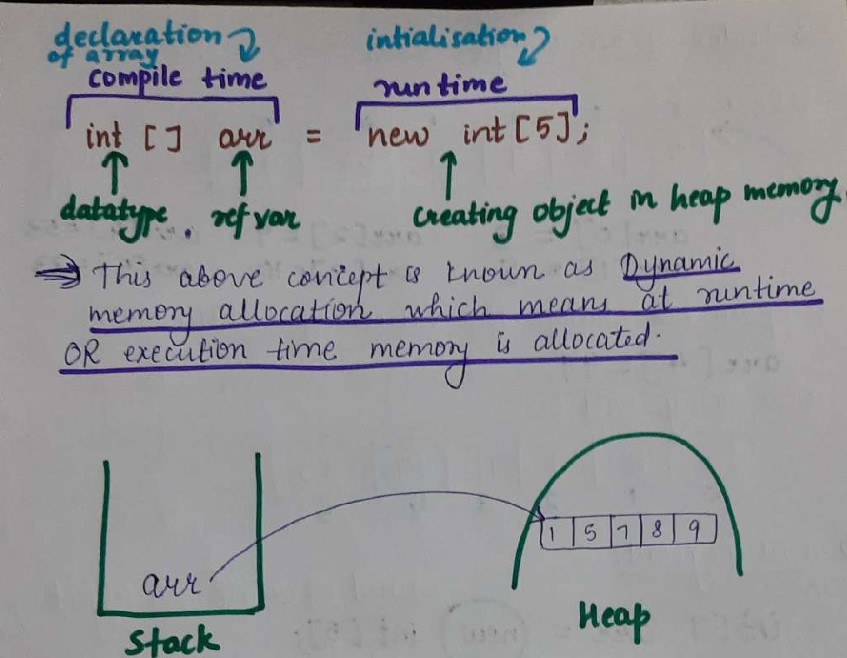 declaration of array
intialisation
compile time
runtime
int [] arr = new int [5];
datatype. ref var
creating object in heap memory
→ This above concept is known as Dynamic
memory allocation which means at runtime
OR execution time memory is allocated.
1 5 7 8 9
arr
Stack
Heap